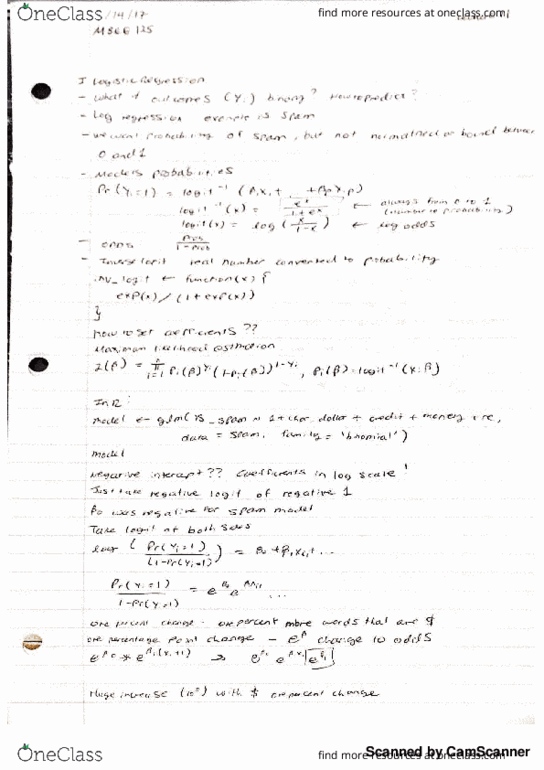 OneClass
find more resources at oneclass.com
/14/17
MS&E 125
I Logistic Regression
- What if outcomes (Yi) binary? How to predict?
- Log regression example is spam
- we want probability of spam, but not normalized or bound between
0 and 1
- Models probabilities
Pr(Yi=1) = logit⁻¹ (β1X1 + +βpXip)
logit⁻¹(x) = e^x / 1+e^x ← always from 0 to 1
(number is probability)
logit(x) = log (x / 1-x) ← log odds
- odds Prob / 1-Prob
- Inverse logit real number converted to probability
inv_logit ← function(x) {
exp(x)/(1+exp(x))
}
How to set coefficients??
Maximum likelihood estimation
L(β) = ∏ i=1 n Pi(β)^Yi (1-Pi(β))^1-Yi, Pi(β)=logit⁻¹(Xiβ)
In R:
model ← glm(is_spam ~ 1 + char_dollar + credit + money + re,
data = spam, family = 'binomial')
model
Negative intercept?? Coefficients in log scale!
Just take negative logit of negative 1
β0 was negative for spam model
Take logit of both sides
log (Pr(Yi=1) / (1-Pr(Yi=1))) = β0+β1Xi1...
Pr(Yi=1) / 1-Pr(Y=1) = e^β0 e^β1Xi1 ...
one percent change - one percent more words that are $
one percentage point change - e^β change to odds
e^β0 * e^β1(Xi+1) → e^β0 e^βXi e^β1
Huge increase with $ one percent change
OneClass
find more resources at oneclass.com
Scanned by CamScanner